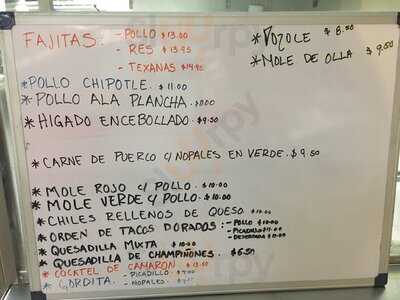 FAJITAS: - POLLO $13.00
- RES $13.95
- TEXANAS $14.90
*POZOLE $8.50
*MOLE DE OLLA $9.50
*POLLO CHIPOTLE. $11.00
*POLLO ALA PLANCHA.
*HIGADO ENCEBOLLADO. $9.50
*CARNE DE PUERCO C/NOPALES EN VERDE. $9.50
*MOLE ROJO C/ POLLO. $10.00
*MOLE VERDE C/ POLLO. $10.00
*CHILES RELLENOS DE QUESO. $10.00
*ORDEN DE TACOS DORADOS: - POLLO $10.00
- PICADILLO $11.00
*QUESADILLA MIXTA $10.00
*QUESADILLA DE CHAMPIÑONES. $6.50
*COCKTEL DE CAMARON. $13.50
*GORDITA. - PICADILLO.
- NOPALES.